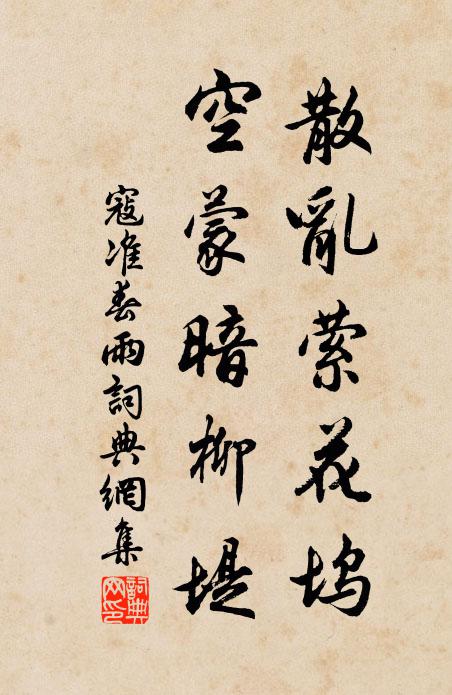 散亂縈花塢
空蒙暗柳堤
寇准春雨詞典網集
詞典網印